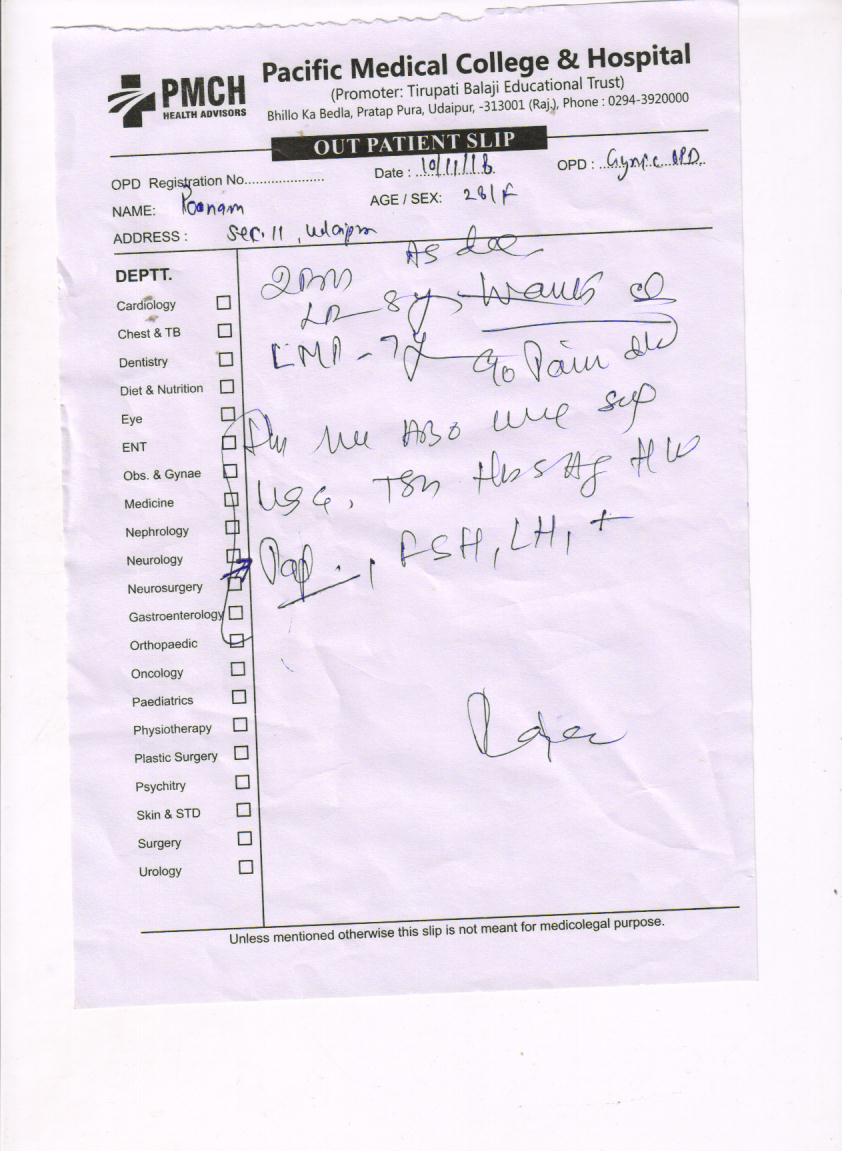 PMCH
HEALTH ADVISORS
Pacific Medical College & Hospital
(Promoter: Tirupati Balaji Educational Trust)
Bhillo Ka Bedla, Pratap Pura, Udaipur, -313001 (Raj.), Phone : 0294-3920000
OUT PATIENT SLIP
OPD Registration No.....................
Date : 10/11/18
OPD :
NAME: Poonam
AGE / SEX: 28/F
ADDRESS : Sec. 11, Udaipur
DEPTT.
Cardiology
Chest & TB
Dentistry
Diet & Nutrition
Eye
ENT
Obs. & Gynae
Medicine
Nephrology
Neurology
Neurosurgery
Gastroenterology
Orthopaedic
Oncology
Paediatrics
Physiotherapy
Plastic Surgery
Psychitry
Skin & STD
Surgery
Urology
LMP - 7
Pain
ABO
USG, TSH HbsAg
Pap , FSH, LH, +
Unless mentioned otherwise this slip is not meant for medicolegal purpose.